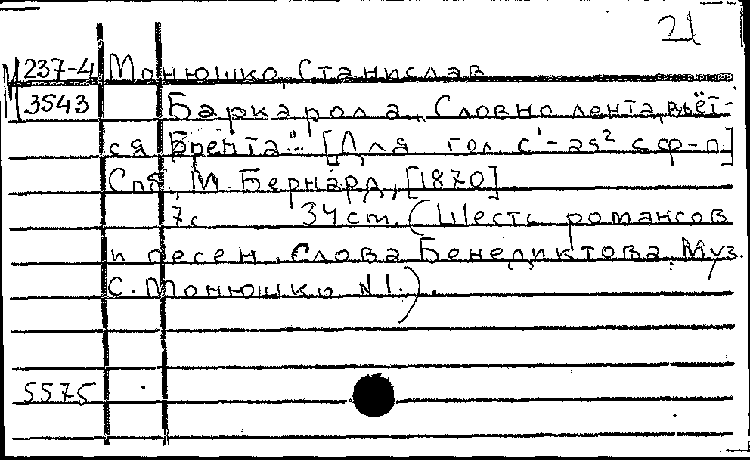 21
М 237-4 Монюшко, Станислав
3543 Баркарола. „Словно лента, вьёт-
ся Брента". [Для гол. c¹-as² с ф-п.]
Спб., М. Бернард, [1870]
7с 34cm. (Шесть романсов
и песен. Слова Бенедиктова. Муз.
С. Монюшко №1.).
5575